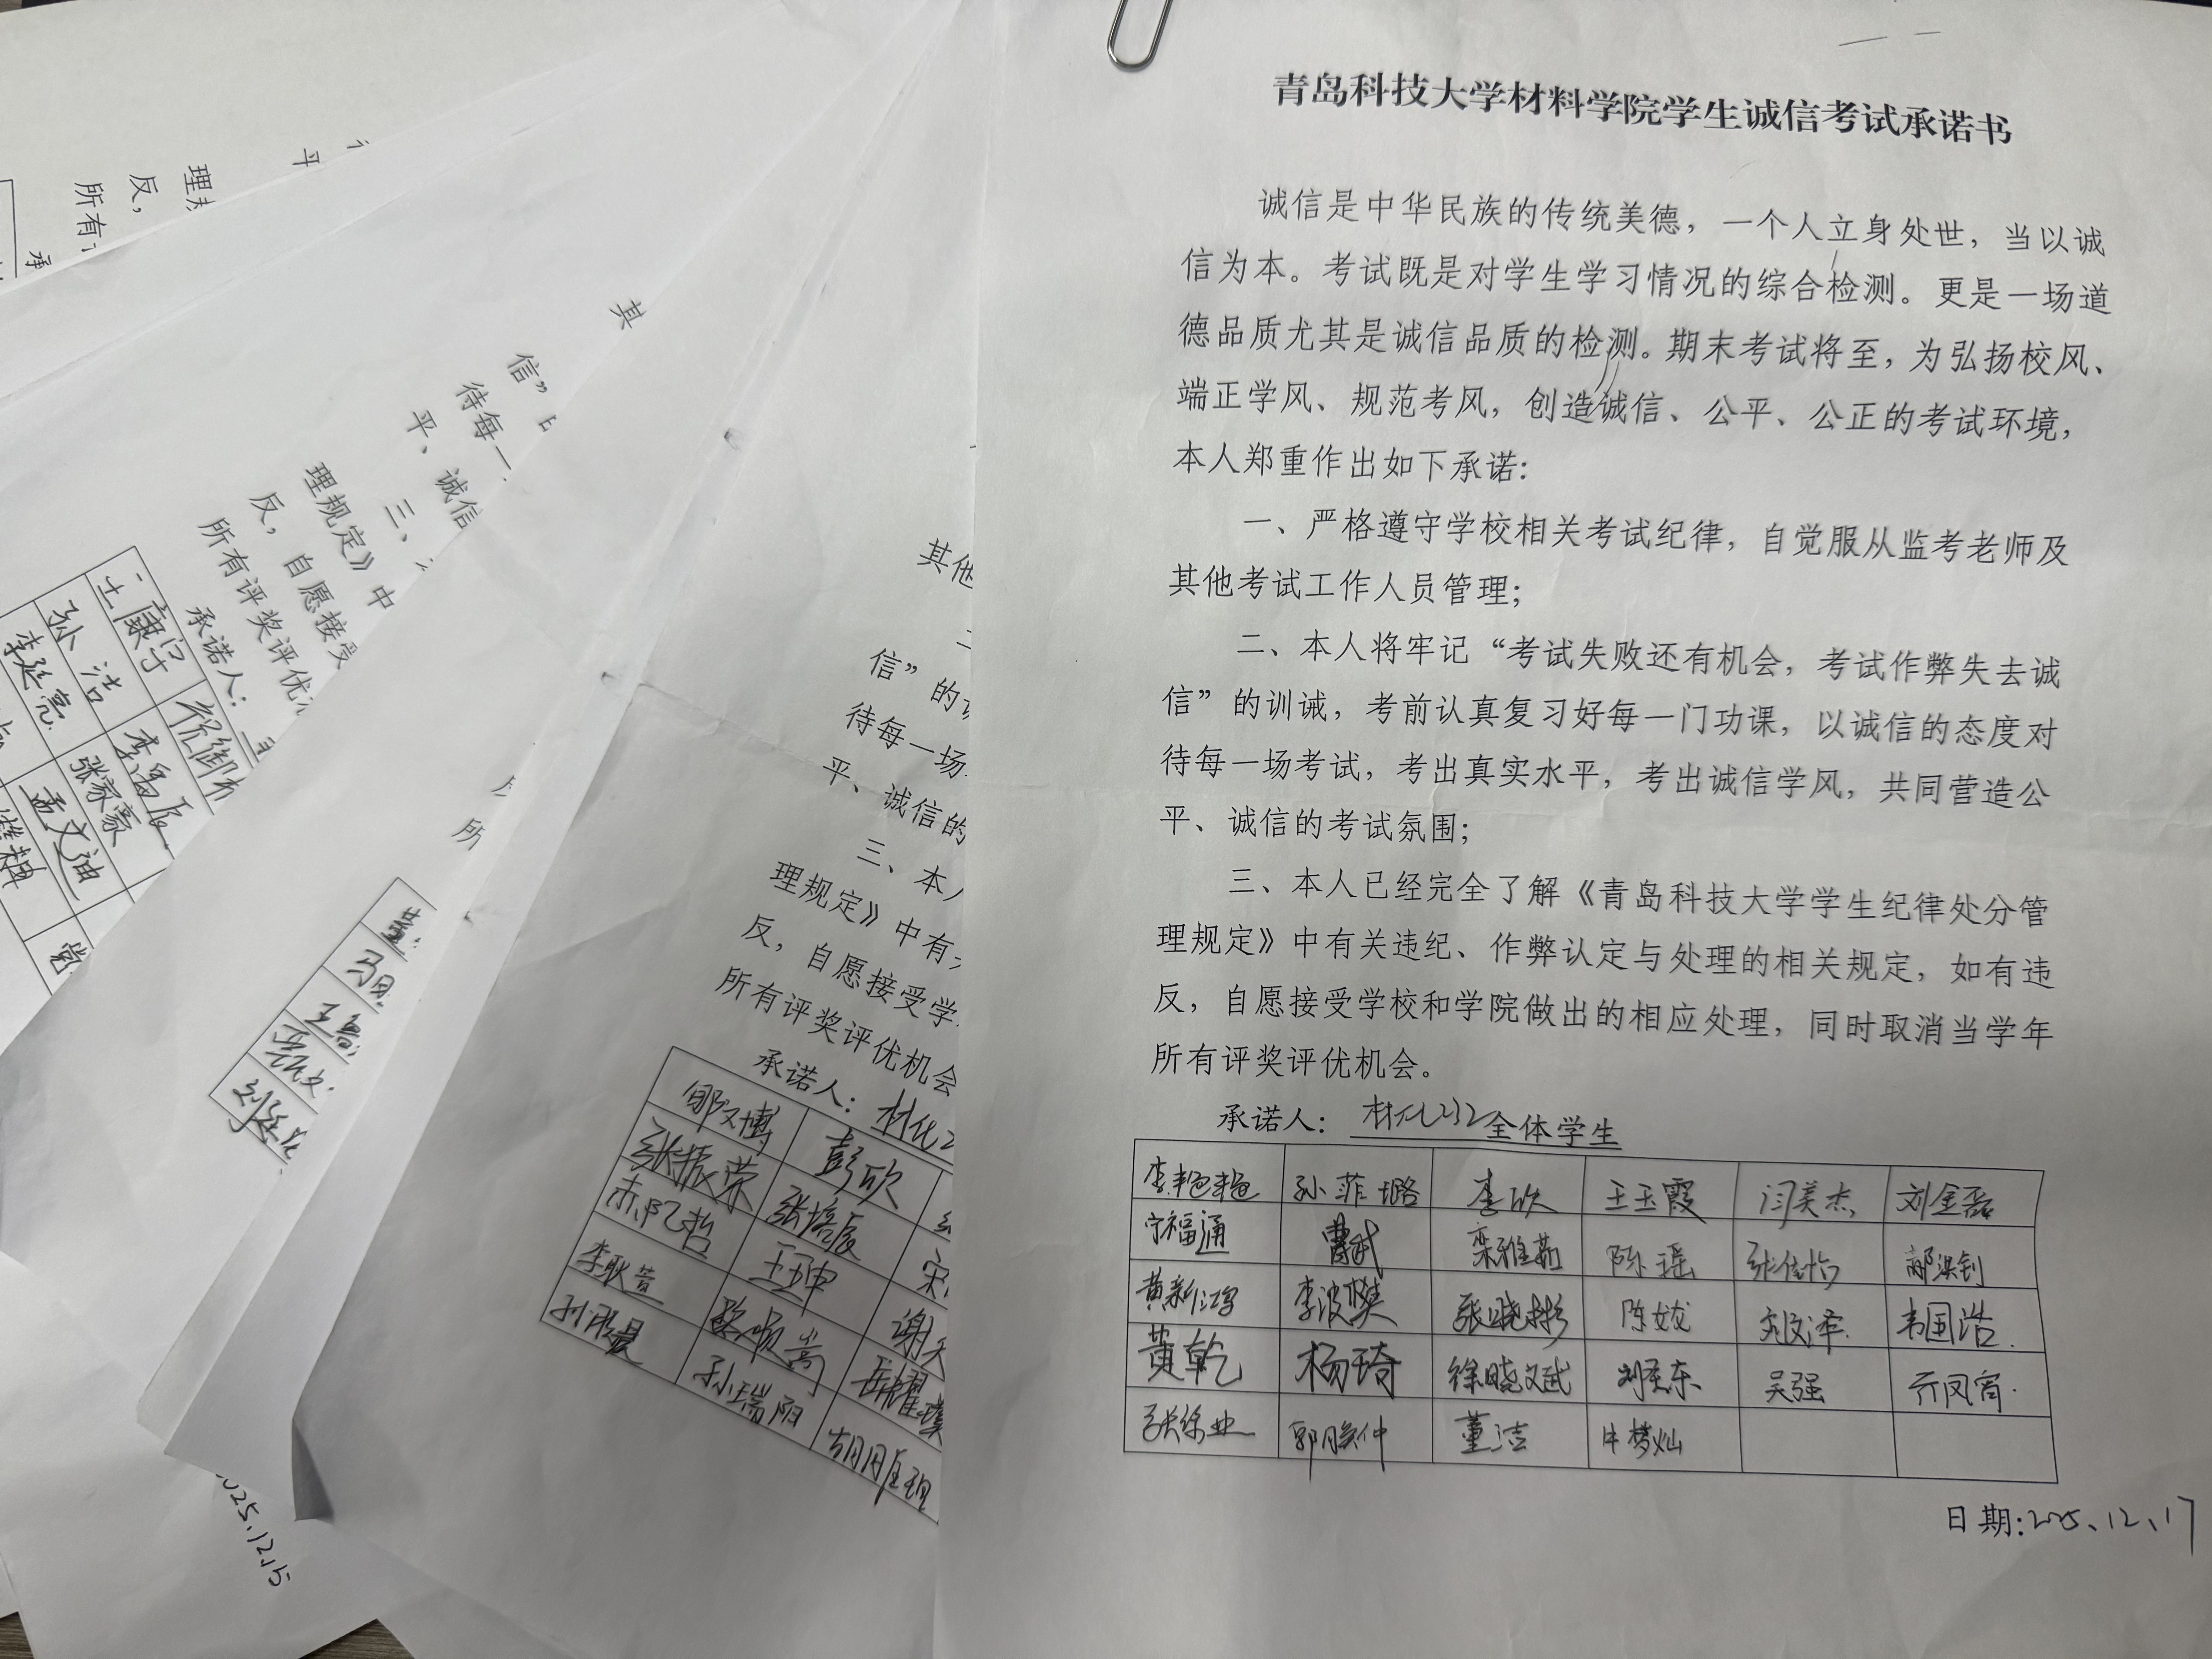 青岛科技大学材料学院学生诚信考试承诺书
诚信是中华民族的传统美德，一个人立身处世，当以诚
信为本。考试既是对学生学习情况的综合检测。更是一场道
德品质尤其是诚信品质的检测。期末考试将至，为弘扬校风、
端正学风、规范考风，创造诚信、公平、公正的考试环境，
本人郑重作出如下承诺：
一、严格遵守学校相关考试纪律，自觉服从监考老师及
其他考试工作人员管理；
二、本人将牢记“考试失败还有机会，考试作弊失去诚
信”的训诫，考前认真复习好每一门功课，以诚信的态度对
待每一场考试，考出真实水平，考出诚信学风，共同营造公
平、诚信的考试氛围；
三、本人已经完全了解《青岛科技大学学生纪律处分管
理规定》中有关违纪、作弊认定与处理的相关规定，如有违
反，自愿接受学校和学院做出的相应处理，同时取消当学年
所有评奖评优机会。
承诺人：材化232全体学生
李艳艳 孙菲璐 李欣 王玉霞 闫美杰 刘金磊
宁福通 曹斌 栾雅茹 陈瑶 张佳怡
黄新鸿 李波樊 张晓彬 陈龙 韦国浩
黄乾 杨琦 徐晓文武 刘圣东 吴强 亓凤宵
张徐业 董洁 牛梦灿
日期：2025、12、17
其他
信”的
待每一场
平、诚信的
三、本人
理规定》中有
反，自愿接受学
所有评奖评优机会
承诺人：材化2
彭欣
张振荣
王玉申
孙瑞阳
其
信”
待每一
平、诚信
三、
理规定》中
反，自愿接受
所有评奖评优
承诺人：
王康宇
孙洁 李昌辰
李延亮 张家豪
孟文迪
所
平
理
反，
所有
承
025.12.15